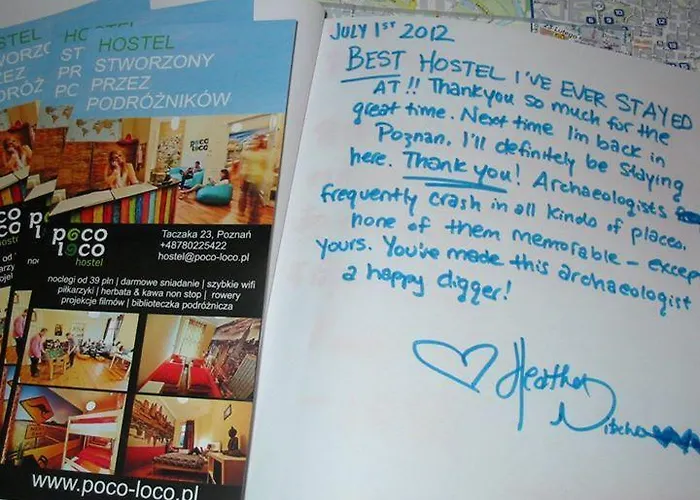 HOSTEL
STWORZONY
PRZEZ
PODRÓŻNIKÓW
poco
loco
poco
loco
hostel
Taczaka 23, Poznań
+48780225422
hostel@poco-loco.pl
noclegi od 39 pln | darmowe sniadanie | szybkie wifi
piłkarzyki | herbata & kawa non stop | rowery
projekcje filmów | biblioteczka podróżnicza
www.poco-loco.pl
JULY 1ST 2012
BEST HOSTEL I'VE EVER STAYED
AT!! Thankyou so much for the
great time. Next time I'm back in
Poznan, I'll definitely be staying
here. Thank you! Archaeologists
frequently crash in all kinds of places,
none of them memorable – except
yours. You've made this archaeologist
a happy digger!
Heather